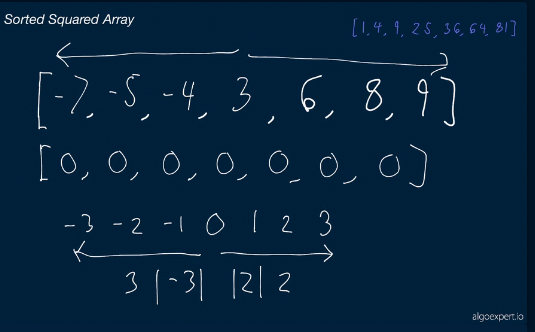 Sorted Squared Array
[1,4,9,25,36,64,81]
[-7, -5, -4, 3, 6, 8, 9]
[0, 0, 0, 0, 0, 0, 0]
-3 -2 -1 0 1 2 3
3 |-3| |2| 2
algoexpert.io